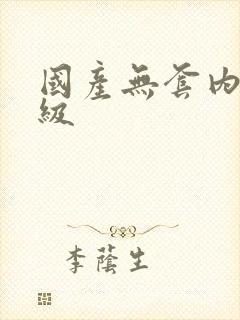 國產無套內
級
李蔭生